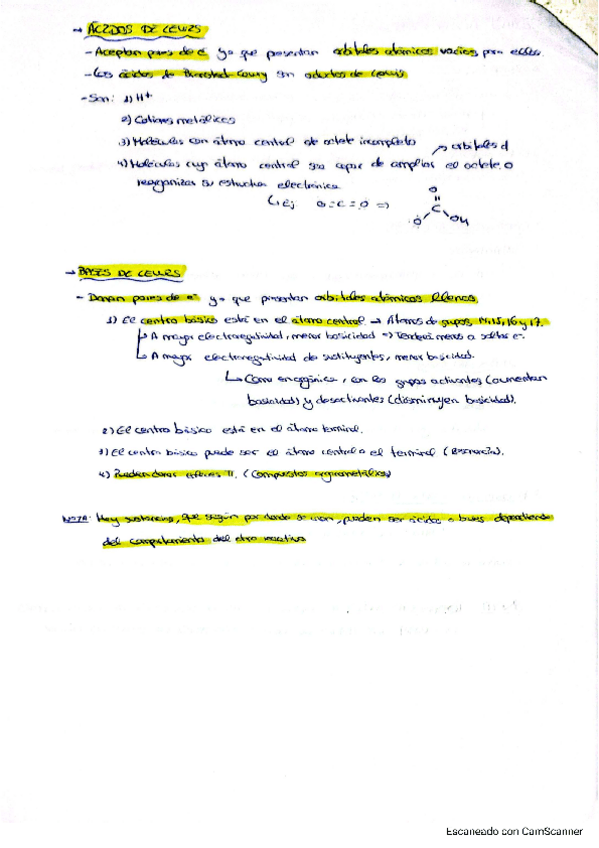 → ÁCIDOS DE LEWIS
- Aceptan pares de e⁻ ya que presentan orbitales atómicos vacíos para ellos.
- Los ácidos de Brønsted-Lowry son aductos de Lewis.
- Son: 1) H⁺
2) Cationes metálicos
3) Moléculas con átomo central de octete incompleto
4) Moléculas cuyo átomo central sea capaz de ampliar el octete o → orbitales d
reorganizar su estructura electrónica
↳ Ej: O=C=O ⇒ O C O OH
→ BASES DE LEWIS
- Donan pares de e⁻ ya que presentan orbitales atómicos llenos.
1) El centro básico está en el átomo central → Átomos de grupos 14, 15, 16 y 17.
↳ A mayor electronegatividad, menor basicidad ⇒ Tenderá menos a soltar e⁻.
↳ A mayor electronegatividad de sustituyentes, menor basicidad.
↳ Como en orgánica, con los grupos activantes (aumentan
basicidad) y desactivantes (disminuyen basicidad).
2) El centro básico está en el átomo terminal.
3) El centro básico puede ser el átomo central o el terminal (Resonancia).
4) Pueden donar enlaces π. (Compuestos organometálicos)
NOTA: Hay sustancias, que según por donde se miren, pueden ser ácidos o bases dependiendo
del comportamiento del otro reactivo
Escaneado con CamScanner